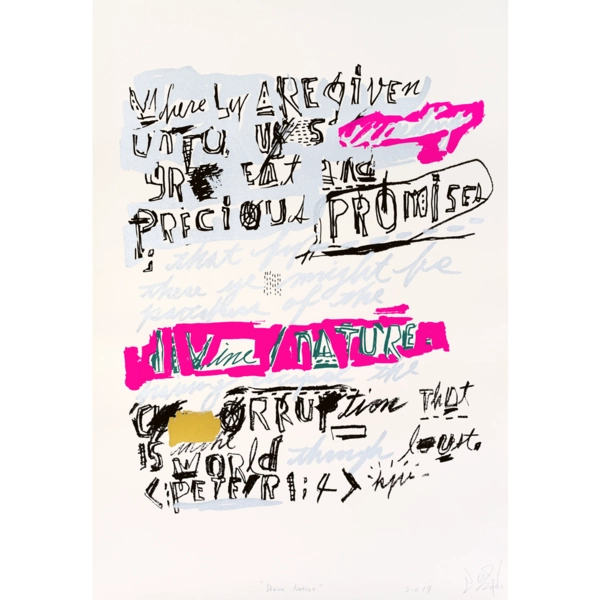 Where by ARE given
UNTO US
GREAT and
PRECIOUS PROMISES
that by
these ye might be
of the
diVine NATURE.
the
CORRUPtion that
IS in the WORLD through lust.
<:PETER 1:4> kjv
"Divine Nature"